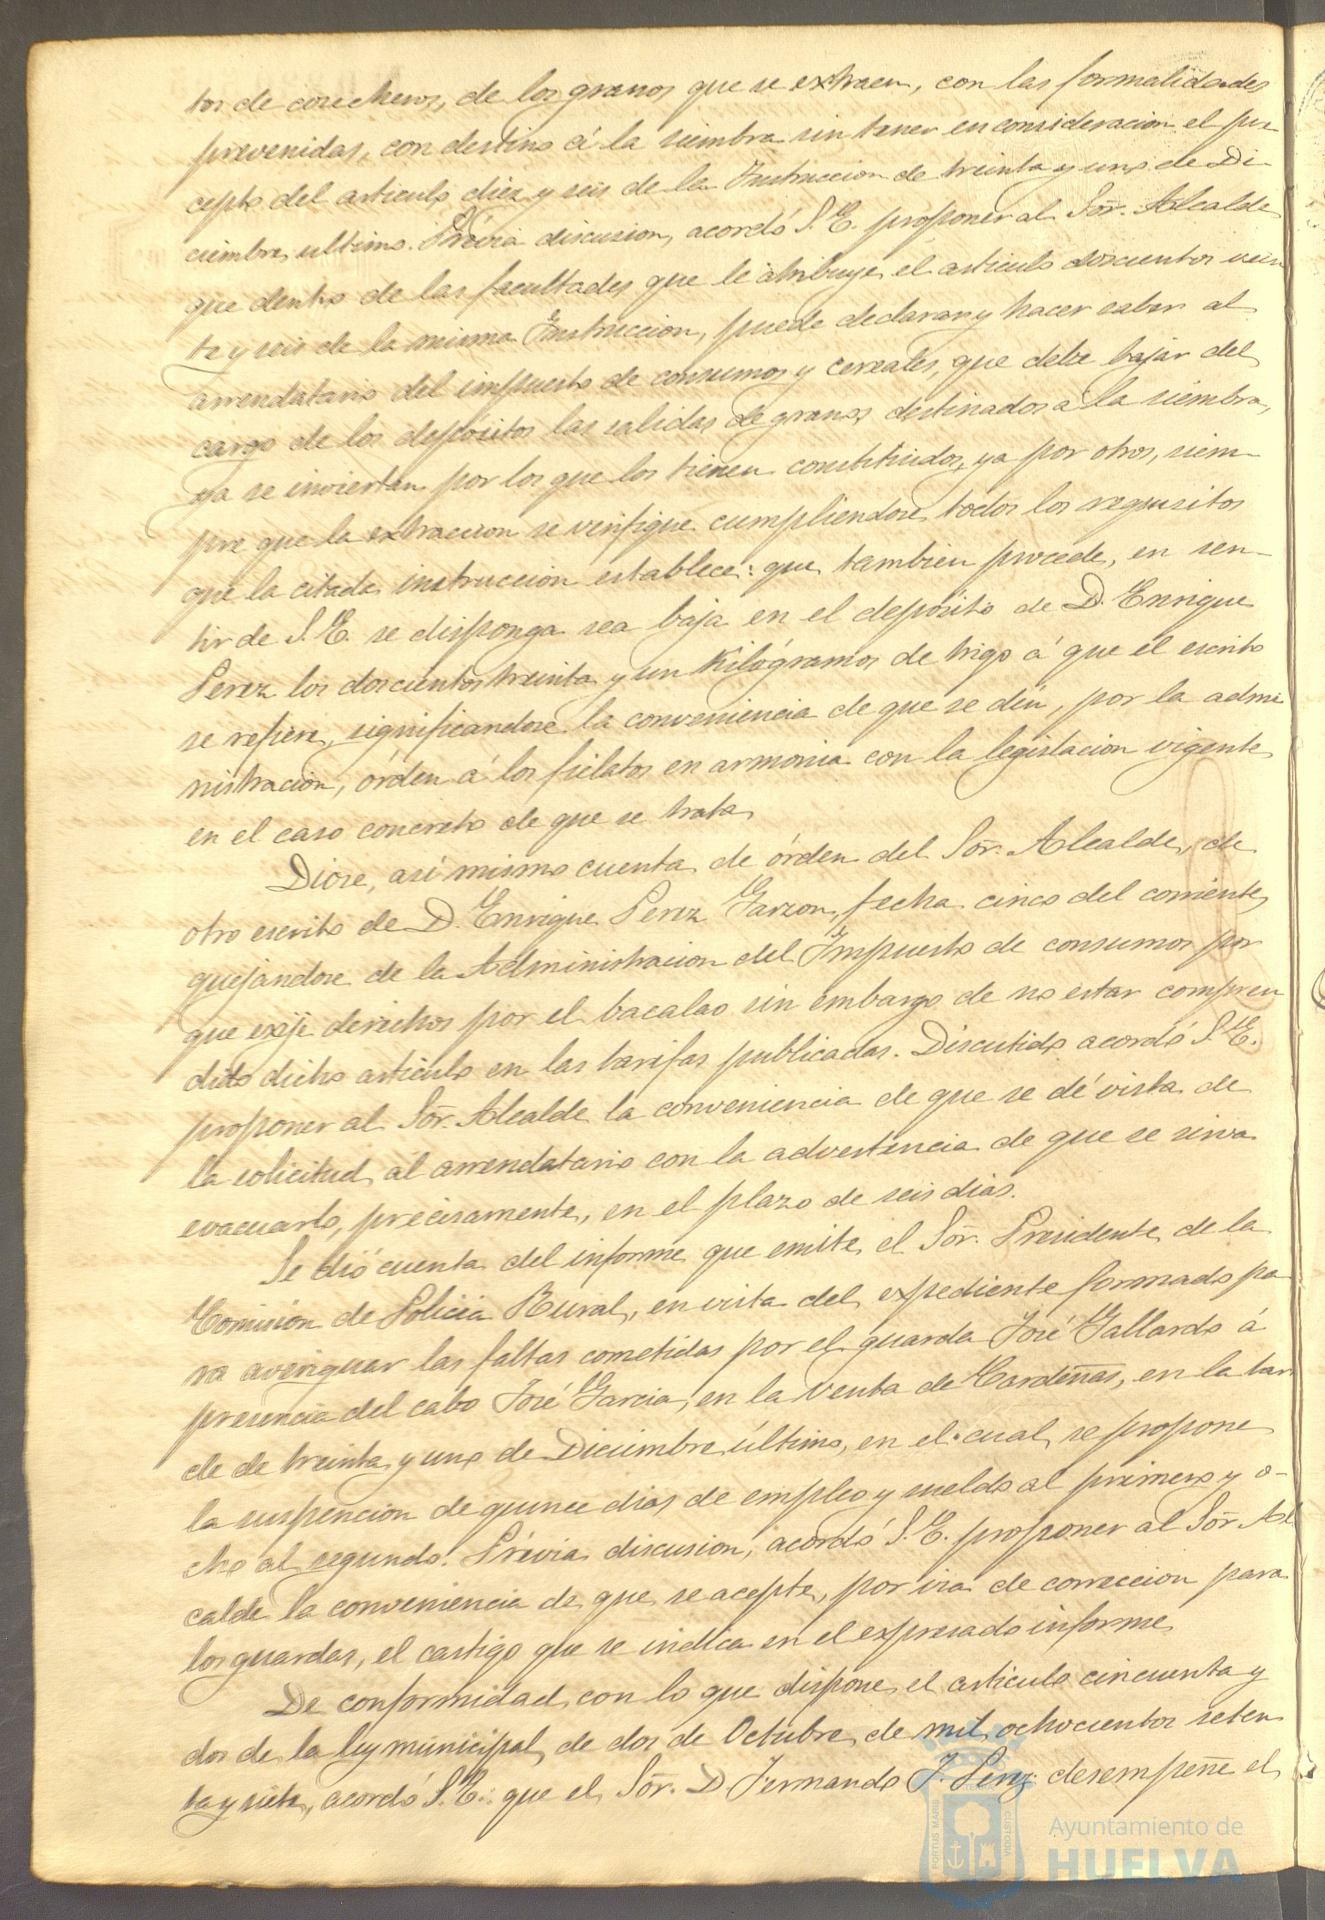 tos de cosecheros, de los granos que se extraen, con las formalidades
prevenidas, con destino á la siembra sin tener en consideracion el pre-
cepto del articulo diez y seis de la Instruccion de treinta y uno de Di-
ciembre ultimo. Prévia discusion, acordó S. E. proponer al Sor. Alcalde
que dentro de las facultades que le atribuye el articulo doscientos vein
te y seis de la misma Instruccion, puede declarar y hacer saber al
arrendatario del impuesto de consumos y cereales, que debe bajar del
cargo de los depósitos las salidas de granos destinados a la siembra,
ya se inviertan por los que los tienen constituidos, ya por otros, siem-
pre que la extraccion se verifique cumpliendose todos los requisitos
que la citada instruccion establece: que tambien procede, en sen-
tir de S. E. se disponga sea baja en el depósito de D. Enrique
Perez los doscientos treinta y un Kilógramos de trigo á que el escrito
se refiere, significandose la conveniencia de que se dén, por la admi
nistracion, órden á los fielatos en armonia con la legislacion vigente
en el caso concreto de que se trata.
Diose, así mismo cuenta de órden del Sor. Alcalde, de
otro escrito de D. Enrique Perez Garzon, fecha cinco del corriente,
quejándose de la Administracion del Impuesto de consumos por
que exije derechos por el bacalao sin embargo de no estar compren
dido dicho articulo en las tarifas publicadas. Discutido acordó S. E.
proponer al Sor. Alcalde la conveniencia de que se dé vista de
la solicitud al arrendatario con la advertencia de que se sirva
evacuarlo, precisamente, en el plazo de seis dias.
Se dió cuenta del informe que emite el Sor. Presidente de la
Comision de Policia Rural, en vista del expediente formado pa
ra averiguar las faltas cometidas por el guarda José Gallardo á
presencia del cabo José Garcia, en la Venta de Cardeñas, en la tar
de de treinta y uno de Diciembre último, en el cual se propone
la suspencion de quince dias de empleo y sueldo al primero y o-
cho al segundo. Prévia discusion, acordó S. E. proponer al Sor. Al
calde la conveniencia de que se acepte, por via de correccion para
los guardas, el castigo que se indica en el expresado informe.
De conformidad con lo que dispone el articulo cincuenta y
dos de la ley municipal de dos de Octubre de mil ochocientos seten
ta y siete, acordó S. E.: que el Sor. D. Fernando J. Perez desempeñe el
PORTUS MARIS CUSTODIA
Ayuntamiento de
HUELVA